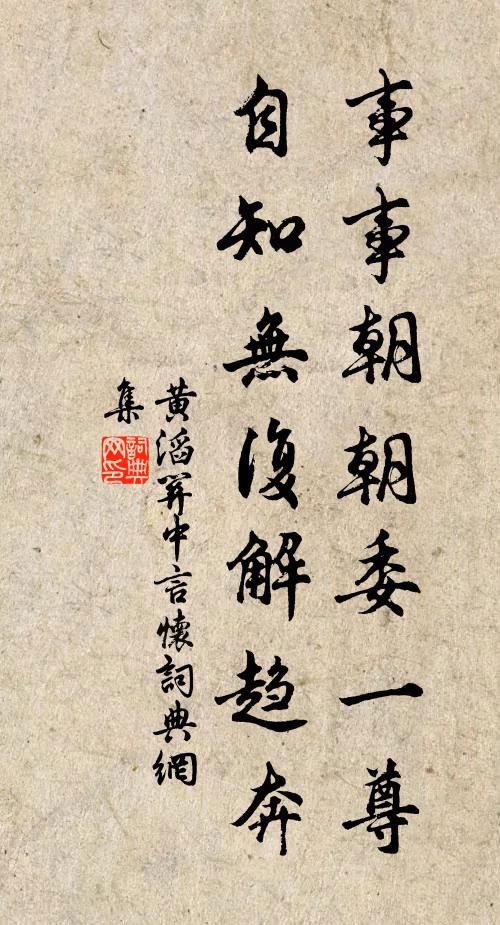 事事朝朝委一尊
自知無復解趨奔
黃滔關中言懷詞典網
集
詞典
网印